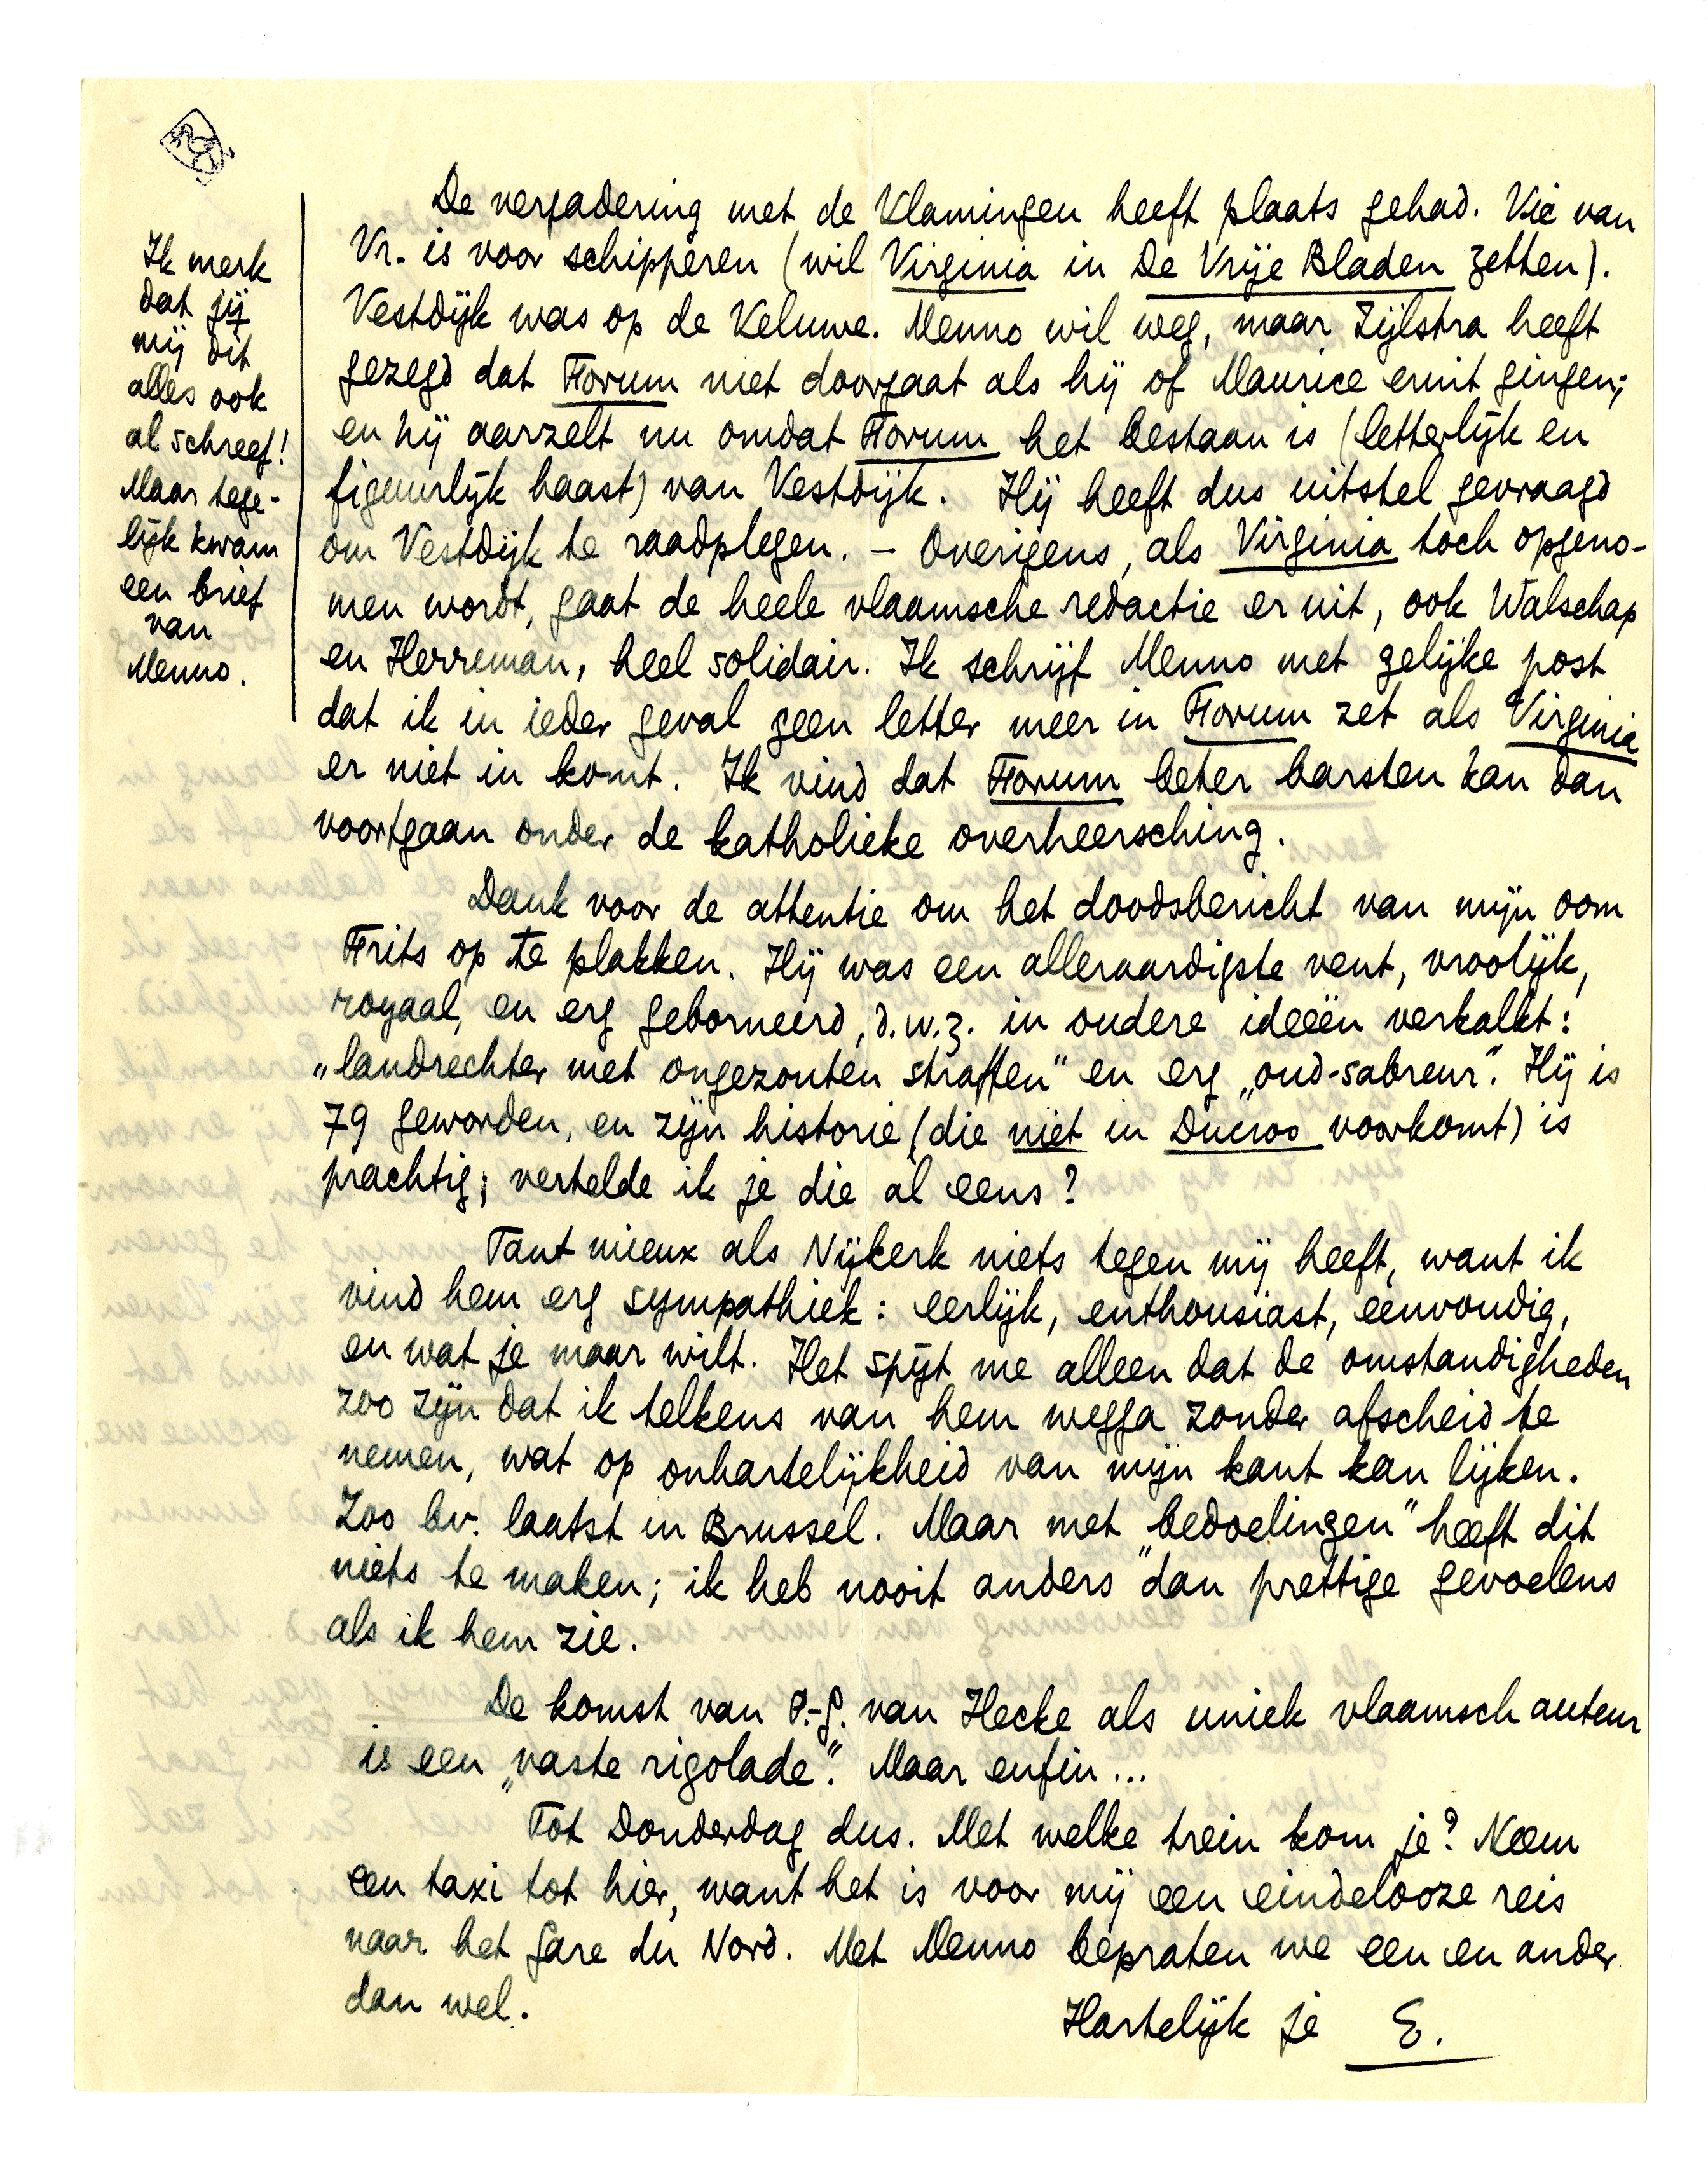 De vergadering met de Vlamingen heeft plaats gehad. Vic van
Vr. is voor schipperen (wil Virginia in De Vrije Bladen zetten).
Vestdijk was op de Veluwe. Menno wil weg, maar Zijlstra heeft
gezegd dat Forum niet doorgaat als hij of Maurice eruit gingen;
en hij aarzelt nu omdat Forum het bestaan is (letterlijk en
figuurlijk haast) van Vestdijk. Hij heeft dus uitstel gevraagd
om Vestdijk te raadplegen. – Overigens, als Virginia toch opgeno-
men wordt, gaat de heele vlaamsche redactie er uit, ook Walschap
en Herreman, heel solidair. Ik schrijf Menno met gelijke post
dat ik in ieder geval geen letter meer in Forum zet als Virginia
er niet in komt. Ik vind dat Forum beter barsten kan dan
voortgaan onder de katholieke overheersching.
Ik merk
dat jij
mij dit
alles ook
al schreef!
Maar tege-
lijk kwam
een brief
van
Menno.
Dank voor de attentie om het doodsbericht van mijn oom
Frits op te plakken. Hij was een alleraardigste vent, vroolijk,
royaal, en erg geborneerd, d.w.z. in oudere ideeën verkalkt:
„landrechter met ongezouten straffen" en erg „oud-sabreur". Hij is
79 geworden, en zijn historie (die niet in Ducroo voorkomt) is
prachtig; vertelde ik je die al eens?
Tant mieux als Nijkerk niets tegen mij heeft, want ik
vind hem erg sympathiek: eerlijk, enthousiast, eenvoudig,
en wat je maar wilt. Het spijt me alleen dat de omstandigheden
zoo zijn dat ik telkens van hem wegga zonder afscheid te
nemen, wat op onhartelijkheid van mijn kant kan lijken.
Zoo bv. laatst in Brussel. Maar met „bedoelingen" heeft dit
niets te maken; ik heb nooit anders dan prettige gevoelens
als ik hem zie.
De komst van P.-G. van Hecke als uniek vlaamsch auteur
is een „vaste rigolade". Maar enfin...
Tot Donderdag dus. Met welke trein kom je? Neem
een taxi tot hier, want het is voor mij een eindelooze reis
naar het Gare du Nord. Met Menno bepraten we een en ander
dan wel.
Hartelijk je E.